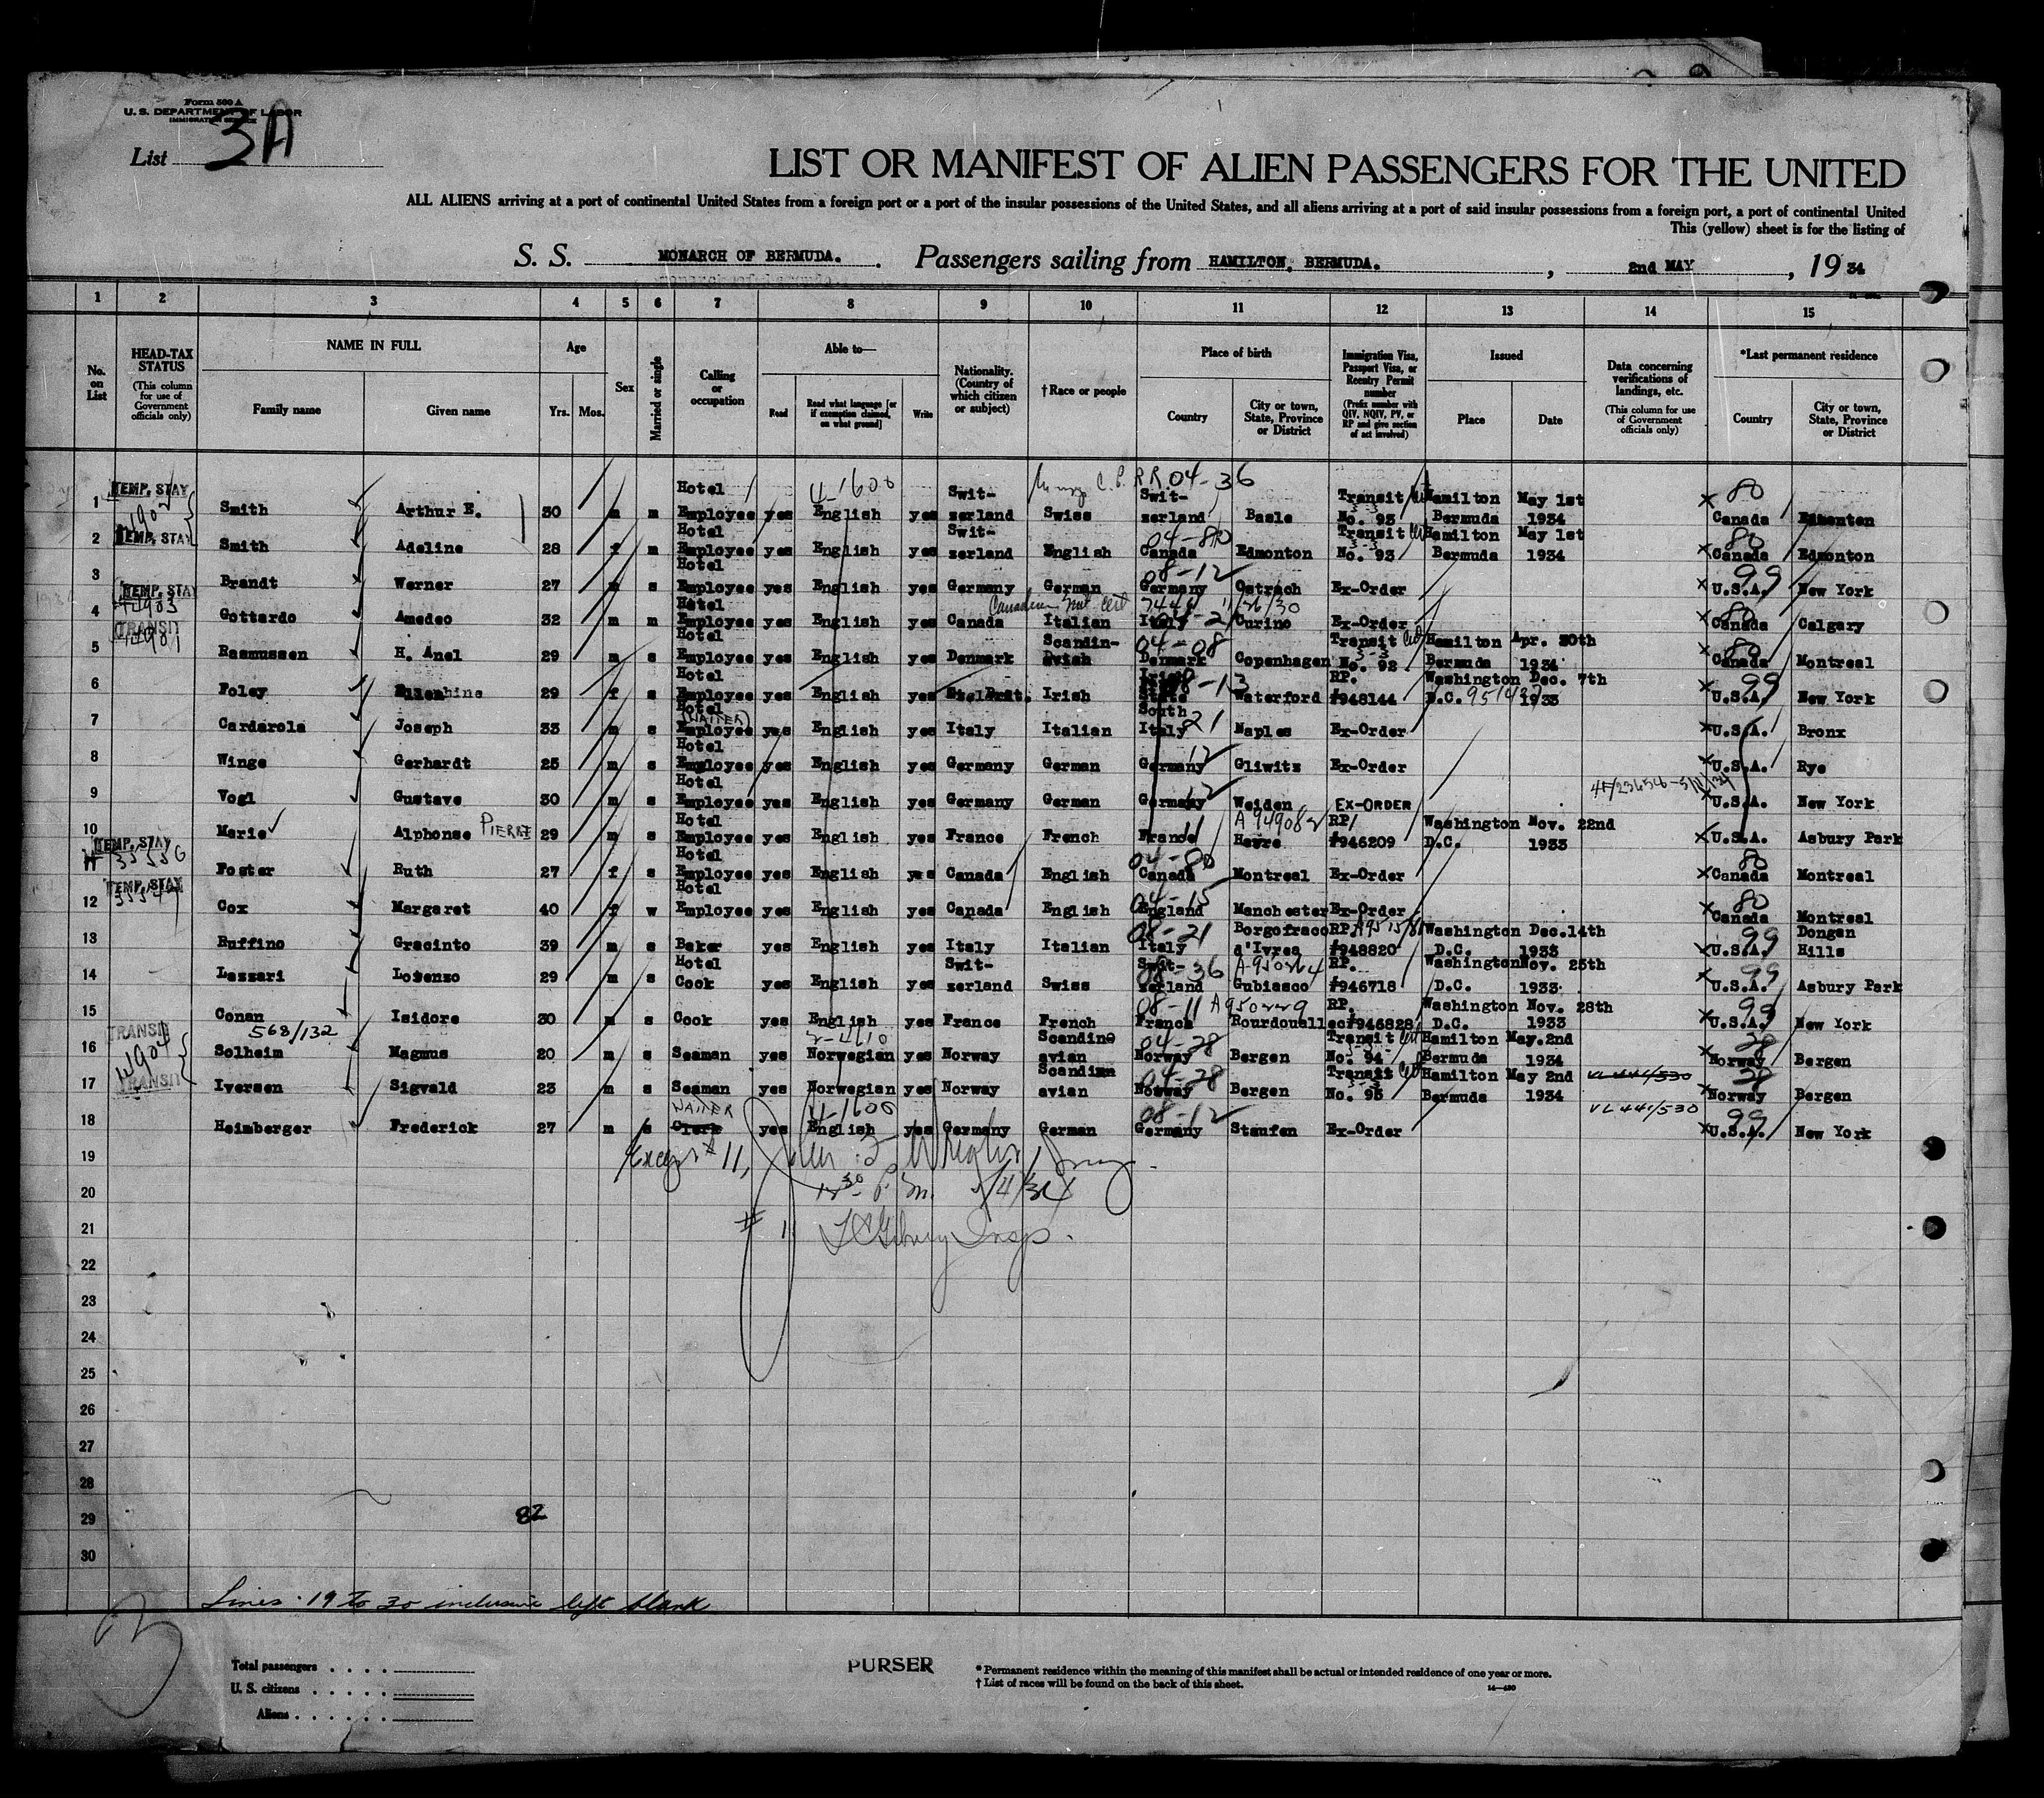 Form 500 A
U. S. DEPARTMENT OF LABOR
IMMIGRATION SERVICE
List 3A
LIST OR MANIFEST OF ALIEN PASSENGERS FOR THE UNITED
ALL ALIENS arriving at a port of continental United States from a foreign port or a port of the insular possessions of the United States, and all aliens arriving at a port of said insular possessions from a foreign port, a port of continental United
This (yellow) sheet is for the listing of
S. S. MONARCH OF BERMUDA. Passengers sailing from HAMILTON, BERMUDA. , 2nd MAY , 19 34
1 2 3 4 5 6 7 8 9 10 11 12 13 14 15
No. on List
HEAD-TAX STATUS (This column for use of Government officials only)
NAME IN FULL Family name Given name
Age Yrs. Mos.
Sex
Married or single
Calling or occupation
Able to— Read Read what language [or if exemption claimed, on what ground] Write
Nationality. (Country of which citizen or subject)
† Race or people
Place of birth Country City or town, State, Province or District
Immigration Visa, Passport Visa, or Reentry Permit number (Prefix number with QIV, NQIV, PV, or RP and give section of act involved)
Issued Place Date
Data concerning verifications of landings, etc. (This column for use of Government officials only)
*Last permanent residence Country City or town, State, Province or District
1 TEMP. STAY Smith Arthur E. 30 m m Hotel Employee yes 4-1600 English yes Swit-zerland Swiss C.P.R.R. 04-36 Swit-zerland Basle Transit No. 93 Hamilton Bermuda May 1st 1934 80 Canada Edmonton
2 TEMP. STAY Smith Adeline 28 f m Hotel Employee yes English yes Swit-zerland English 04-80 Canada Edmonton Transit No. 93 Hamilton Bermuda May 1st 1934 80 Canada Edmonton
3 Brandt Werner 27 m s Hotel Employee yes English yes Germany German 08-12 Germany Ostrach Ex-Order 99 U.S.A. New York
4 TEMP. STAY Gottardo Amedeo 32 m m Hotel Employee yes English yes Canada Italian Italy Curino Ex-Order 80 Canada Calgary
5 TRANSIT Rasmussen H. Anel 29 m s Hotel Employee yes English yes Denmark Scandin-avish 04-08 Denmark Copenhagen Transit No. 92 Hamilton Bermuda Apr. 30th 1934 80 Canada Montreal
6 Foley 29 f s Hotel Employee yes English yes Irish Waterford RP. #948144 Washington D.C. Dec. 7th 1933 99 U.S.A. New York
7 Cardarola Joseph 33 m s Hotel (WAITER) Employee yes English yes Italy Italian South Italy 21 Naples Ex-Order U.S.A. Bronx
8 Winge Gerhardt 25 m s Hotel Employee yes English yes Germany German Germany 12 Gliwitz Ex-Order U.S.A. Rye
9 Vogl Gustave 30 m s Hotel Employee yes English yes Germany German Germany 12 Weiden EX-ORDER U.S.A. New York
10 Marie Alphonse PIERRE 29 m s Hotel Employee yes English yes France French France 11 Havre RP #946209 Washington D.C. Nov. 22nd 1933 U.S.A. Asbury Park
TEMP. STAY Foster Ruth 27 f s Hotel Employee yes English yes Canada English 04-80 Canada Montreal Ex-Order 80 Canada Montreal
12 TEMP. STAY Cox Margaret 40 f w Hotel Employee yes English yes Canada English 04-15 England Manchester Ex-Order 80 Canada Montreal
13 Ruffino Gracinto 39 m s Baker yes English yes Italy Italian 08-21 Italy Borgofraco d'Ivrea RP. #948820 Washington D.C. Dec.14th 1933 99 U.S.A. Dongan Hills
14 Lazzari Losenzo 29 m s Hotel Cook yes English yes Swit-zerland Swiss 08-36 Swit-zerland Gubiasco A950264 RP. #946718 Washington D.C. Nov. 25th 1933 99 U.S.A. Asbury Park
15 Conan Isidore 30 m s Cook yes English yes France French 08-11 France A950229 RP. #946828 Washington D.C. Nov. 28th 1933 99 U.S.A. New York
568/132
16 TRANSIT Solheim Magnus 20 m s Seaman yes Norwegian yes Norway Scandinavian 04-28 Norway Bergen Transit No. 94 Hamilton Bermuda May.2nd 1934 28 Norway Bergen
17 TRANSIT Iversen Sigvald 23 m s Seaman yes Norwegian yes Norway Scandinavian 04-28 Norway Bergen Transit No. 95 Hamilton Bermuda May 2nd 1934 VL 441/530 28 Norway Bergen
18 Heimberger Frederick 27 m s WAITER Clerk yes 4-1600 English yes Germany German 08-12 Germany Staufen Ex-Order VL 441/530 99 U.S.A. New York
19 Except #11,
20 5/4/34
21 # 11
22
23
24
25
26
27
28
29 82
30
Lines 19 to 30 inclusive left blank
Total passengers
U. S. citizens
Aliens
PURSER
* Permanent residence within the meaning of this manifest shall be actual or intended residence of one year or more.
† List of races will be found on the back of this sheet.
14—430